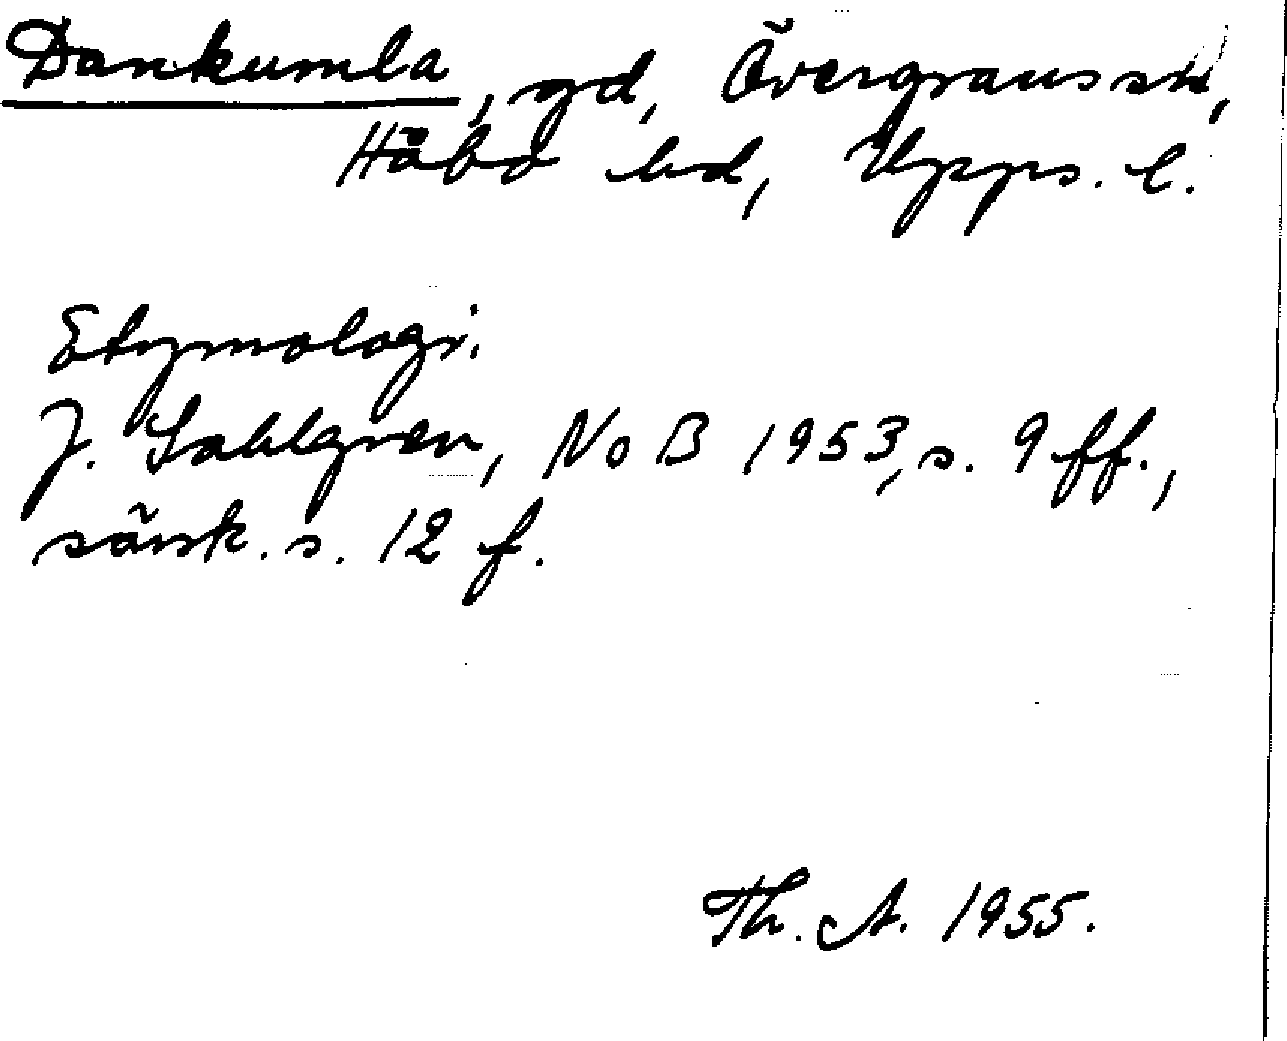 Dankumla, gd, Övergrans sn,
Håbo hd, Upps. l.
Etymologi.
J. Sahlgren, NoB 1953, s. 9 ff.,
särsk. s. 12 f.
Th. A. 1955.